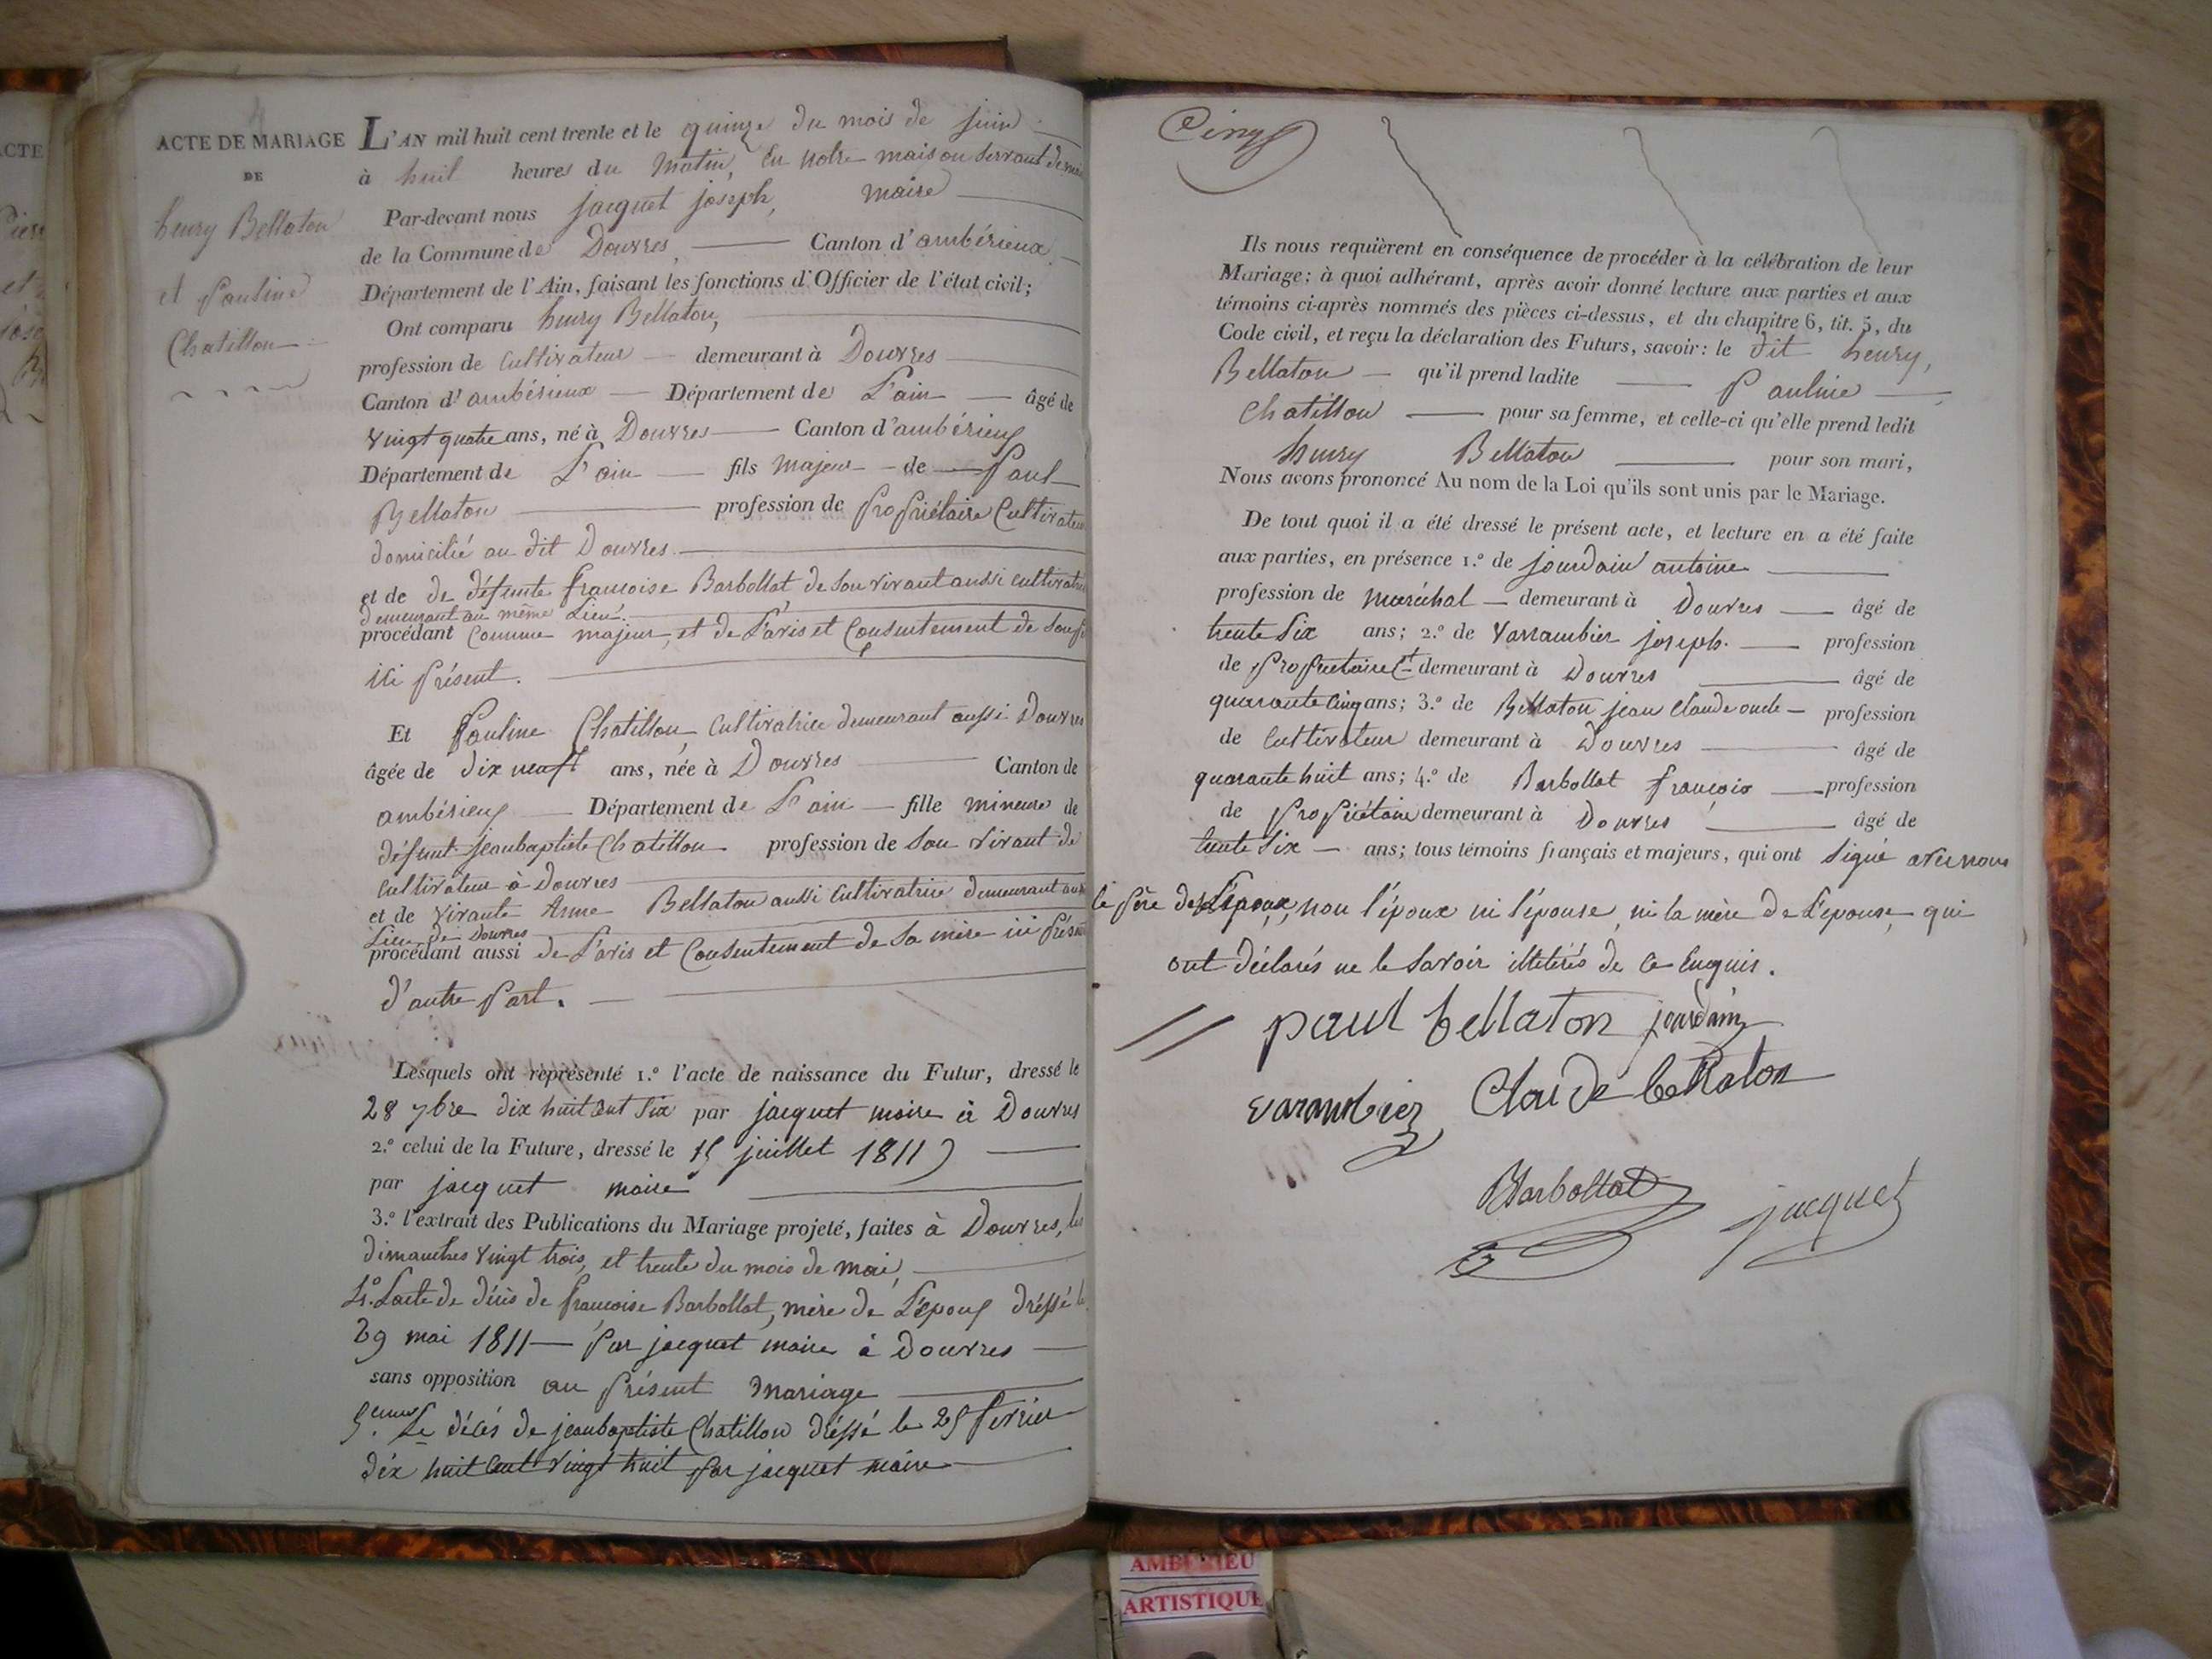 ACTE DE MARIAGE
DE
henry Bellaton
et Pauline
Chatillon
L'AN mil huit cent trente et le quinze du mois de juin
à huit heures du matin, En notre maison servant de
Par-devant nous jacquet joseph, maire
de la Commune de Douvres, Canton d'ambérieux
Département de l'Ain, faisant les fonctions d'Officier de l'état civil;
Ont comparu henry Bellaton,
profession de Cultivateur demeurant à Douvres
Canton d'ambérieux Département de L'ain âgé de
vingt quatre ans, né à Douvres Canton d'ambérieux
Département de L'ain fils majeur de Paul
Bellaton profession de Propriétaire Cultivateur
domicilié au dit Douvres
et de de défunte françoise Barbollat de son vivant aussi cultivatrice
demeurant au même Lieu.
procédant comme majeur, et de L'avis et Consentement de son
ici Présent.
Et Pauline Chatillon, Cultivatrice demeurant aussi Douvres
âgée de dix neuf ans, née à Douvres Canton de
ambérieux Département de L'ain fille mineure de
défunt jeanbaptiste Chatillon profession de son vivant de
Cultivateur à Douvres
et de vivante Anne Bellaton aussi Cultivatrice demeurant au
Lieu de Douvres
procédant aussi de L'avis et Consentement de sa mère ici Présente
d'autre Part.
Lesquels ont représenté 1.º l'acte de naissance du Futur, dressé le
28 7bre dix huit cent six par jacquet maire à Douvres
2.º celui de la Future, dressé le 15 juillet 1811
par jacquet maire
3.º l'extrait des Publications du Mariage projeté, faites à Douvres, les
dimanches vingt trois, et trente du mois de mai,
4º. L'acte de décès de françoise Barbollat, mère de L'époux dréssé le
29 mai 1811 Par jacquet maire à Douvres
sans opposition au Présent mariage
5. Le décés de jeanbaptiste Chatillon dréssé le 25 fevrier
dix huit cent vingt huit par jacquet maire
Cinq
Ils nous requièrent en conséquence de procéder à la célébration de leur
Mariage; à quoi adhérant, après avoir donné lecture aux parties et aux
témoins ci-après nommés des pièces ci-dessus, et du chapitre 6, tit. 5, du
Code civil, et reçu la déclaration des Futurs, savoir: le dit henry,
Bellaton qu'il prend ladite Pauline
Chatillon pour sa femme, et celle-ci qu'elle prend ledit
henry Bellaton pour son mari,
Nous avons prononcé Au nom de la Loi qu'ils sont unis par le Mariage.
De tout quoi il a été dressé le présent acte, et lecture en a été faite
aux parties, en présence 1.º de jourdain antoine
profession de maréchal demeurant à Douvres âgé de
trente six ans; 2.º de Varrambier joseph. profession
de Propriétaire demeurant à Douvres âgé de
quarante cinq ans; 3.º de Bellaton jean Claude oncle profession
de Cultivateur demeurant à Douvres âgé de
quarante huit ans; 4.º de Barbollat françois profession
de Propriétaire demeurant à Douvres âgé de
trente six ans; tous témoins français et majeurs, qui ont signé avec nous
le père de L'époux, non l'époux ni l'épouse, ni la mère de L'épouse, qui
ont déclarés ne le savoir illétérés de ce Enquis.
paul bellaton jourdain
varambier Claude bellaton
Barbollat jacquet
AMBERIEU
ARTISTIQUE